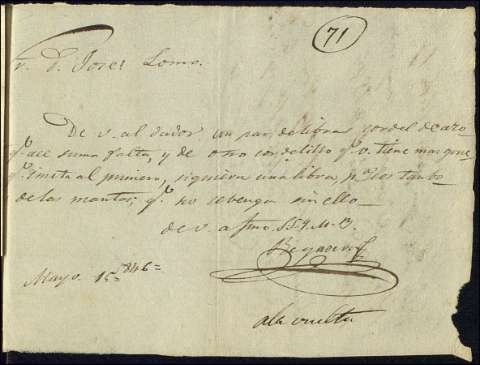 71
S. D. Jose Lomo.
De v. al dador un par de libras cordel de azo
q.e ace suma falta, y de otro cordelillo q.e v. tiene mas que
q.e imita al primero, siquiera una libra, p.a los
de las mantas; q.e no se benga sin ello
de v. afmo S.S.Q.S.M.B.
Mayo 15 846=
ala vuelta